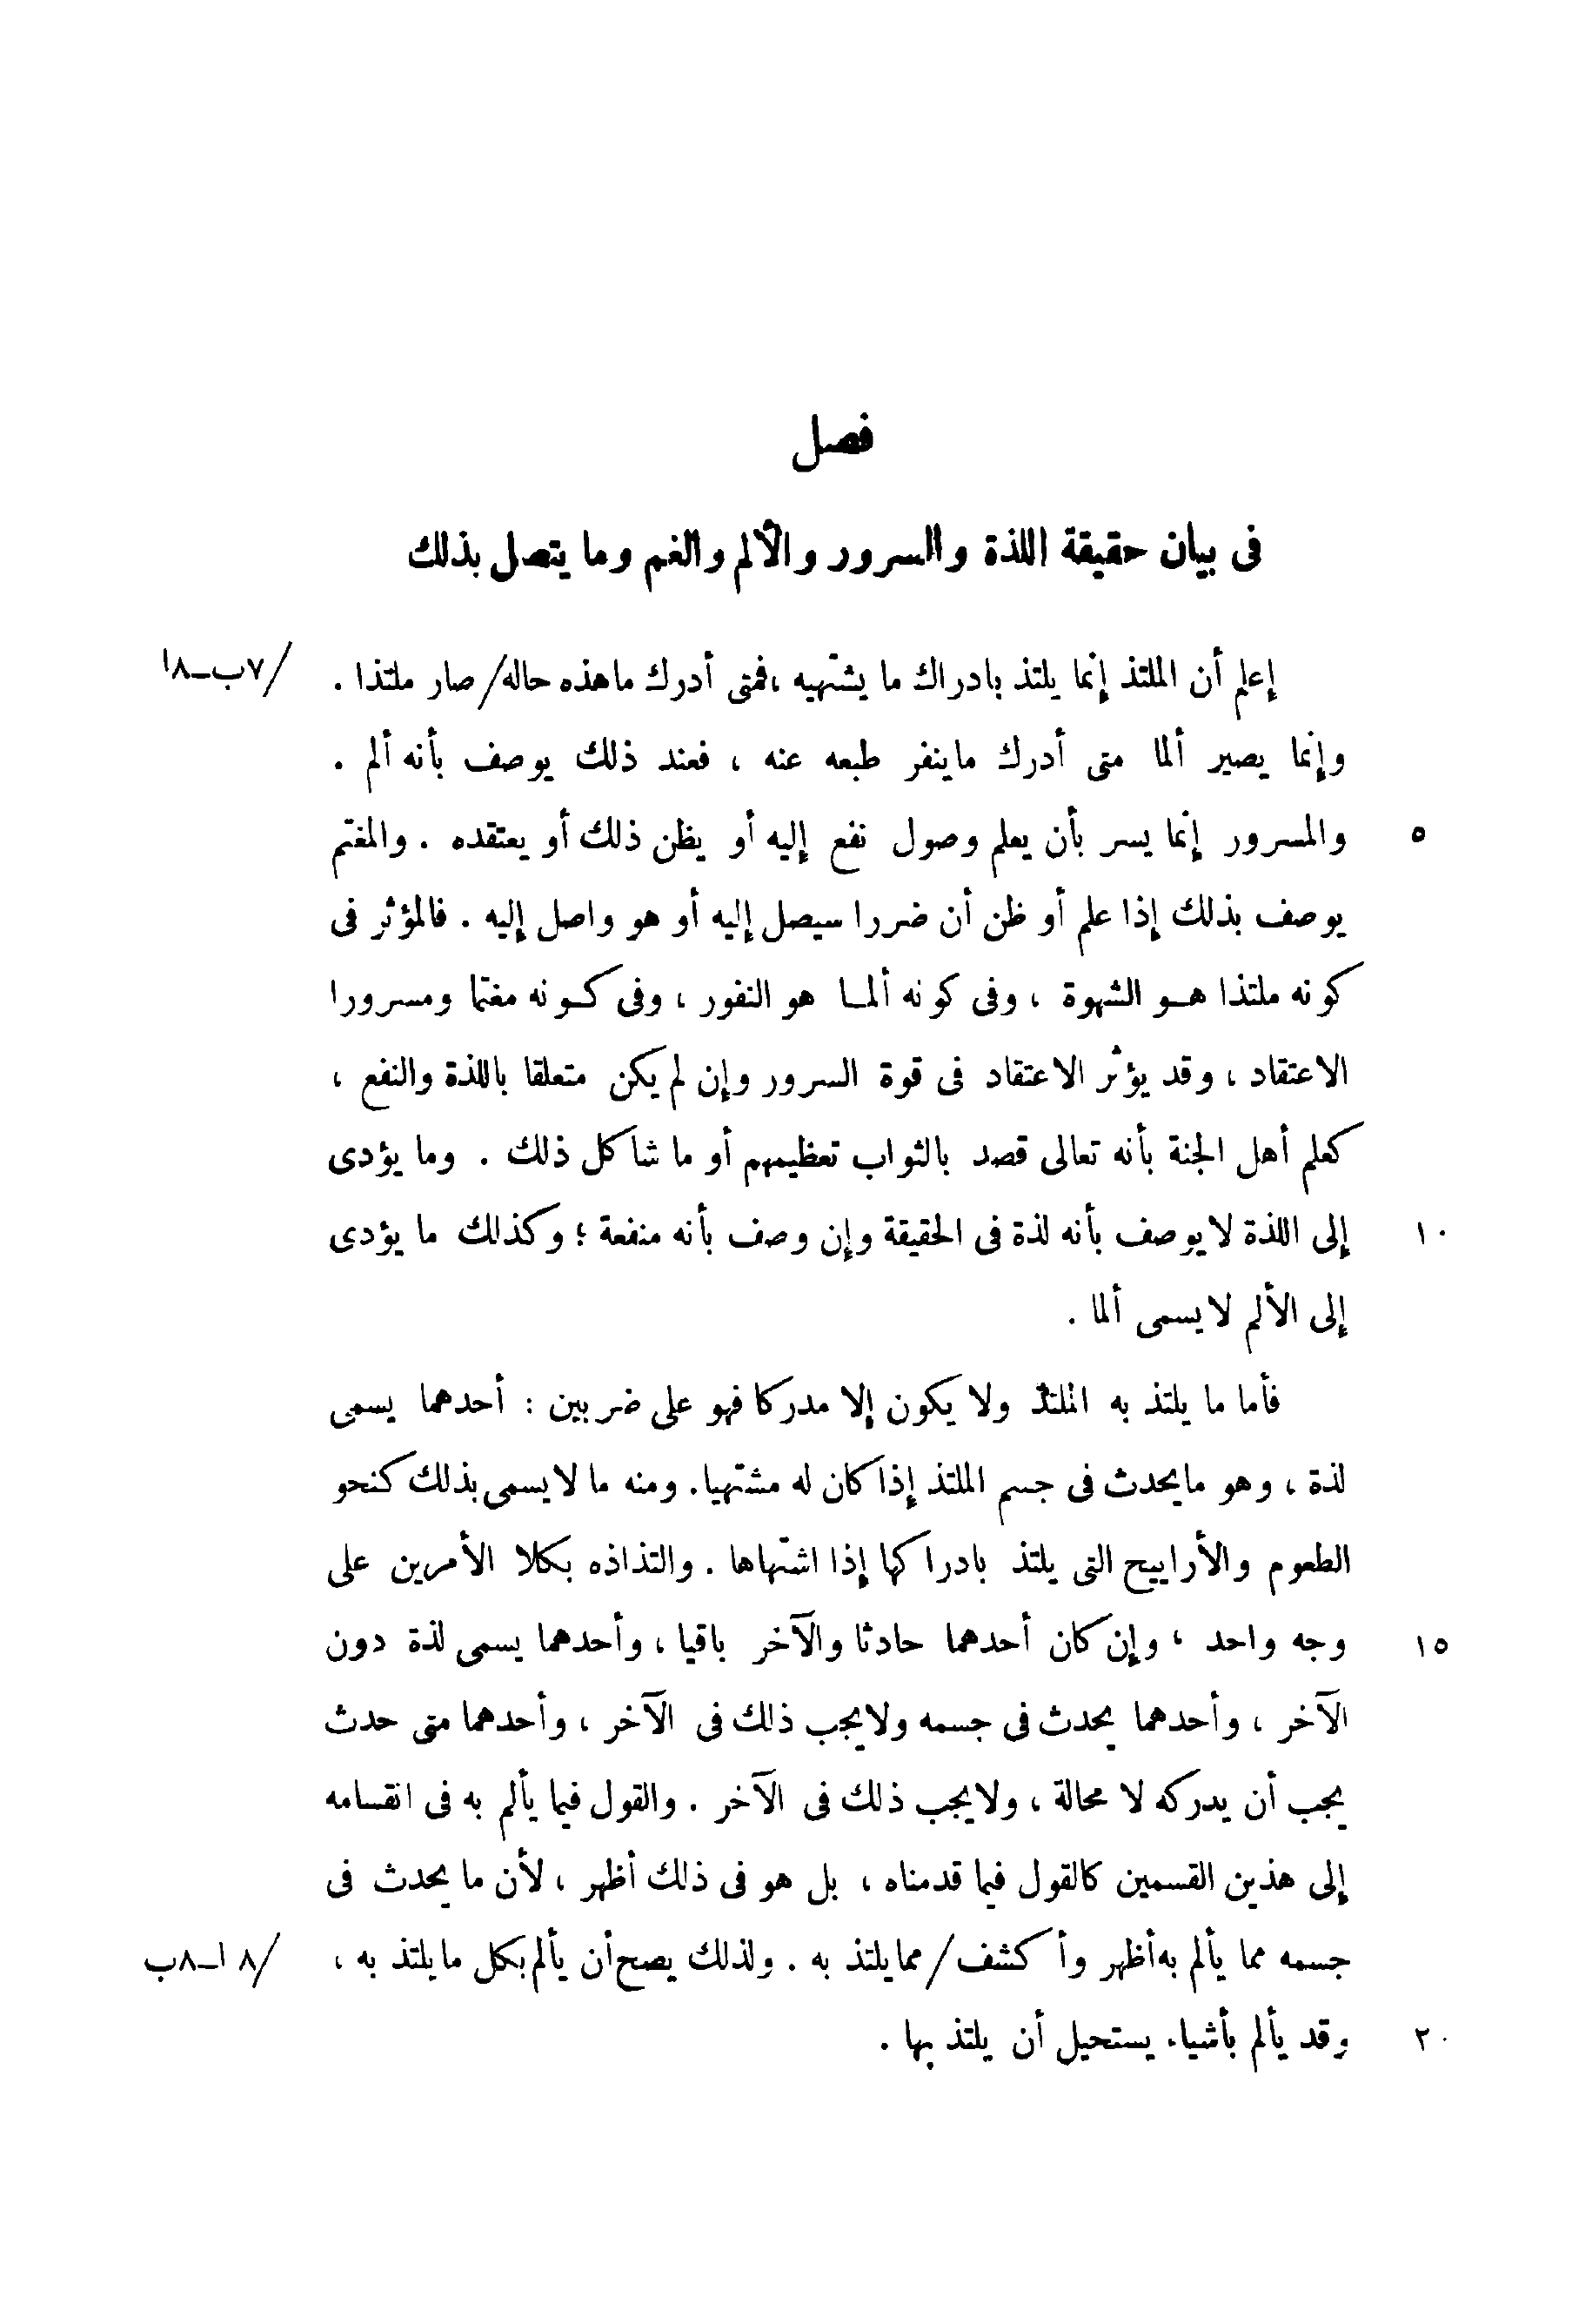 فصل
فى بيان حقيقة اللذة والسرور والألم والغم وما يتصل بذلك
إعلم أن الملتذ إنما يلتذ بادراك ما يشتهيه ، فمتى أدرك ماهذه حاله/ صار ملتذا . /٧ب-٨ا
وإنما يصير ألما متى أدرك ماينفر طبعه عنه ، فعند ذلك يوصف بأنه ألم .
٥ والمسرور إنما يسر بأن يعلم وصول نفع إليه أو يظن ذلك أو يعتقده . والمغتم
يوصف بذلك إذا علم أو ظن أن ضررا سيصل إليه أو هو واصل إليه . فالمؤثر فى
كونه ملتذا هو الشهوة ، وفى كونه ألما هو النفور ، وفى كونه مغتما ومسرورا
الاعتقاد ، وقد يؤثر الاعتقاد فى قوة السرور وإن لم يكن متعلقا باللذة والنفع ،
كعلم أهل الجنة بأنه تعالى قصد بالثواب تعظيمهم أو ما شاكل ذلك . وما يؤدى
١٠ إلى اللذة لايوصف بأنه لذة فى الحقيقة وإن وصف بأنه منفعة ؛ وكذلك ما يؤدى
إلى الألم لايسمى ألما .
فأما ما يلتذ به الملتذ ولا يكون إلا مدركا فهو على ضربين : أحدهما يسمى
لذة ، وهو مايحدث فى جسم الملتذ إذا كان له مشتهيا. ومنه ما لايسمى بذلك كنحو
الطعوم والأراييح التى يلتذ بادراكها إذا اشتهاها . والتذاذه بكلا الأمرين على
١٥ وجه واحد ، وإن كان أحدهما حادثا والآخر باقيا ، وأحدهما يسمى لذة دون
الآخر ، وأحدهما يحدث فى جسمه ولايجب ذلك فى الآخر ، وأحدهما متى حدث
يجب أن يدركه لا محالة ، ولايجب ذلك فى الآخر . والقول فيما يألم به فى انقسامه
إلى هذين القسمين كالقول فيما قدمناه ، بل هو فى ذلك أظهر ، لأن ما يحدث فى
جسمه مما يألم به أظهر وأكشف/ مما يلتذ به . ولذلك يصح أن يألم بكل مايلتذ به ، /٨ا-٨ب
٢٠ وقد يألم بأشياء يستحيل أن يلتذ بها .